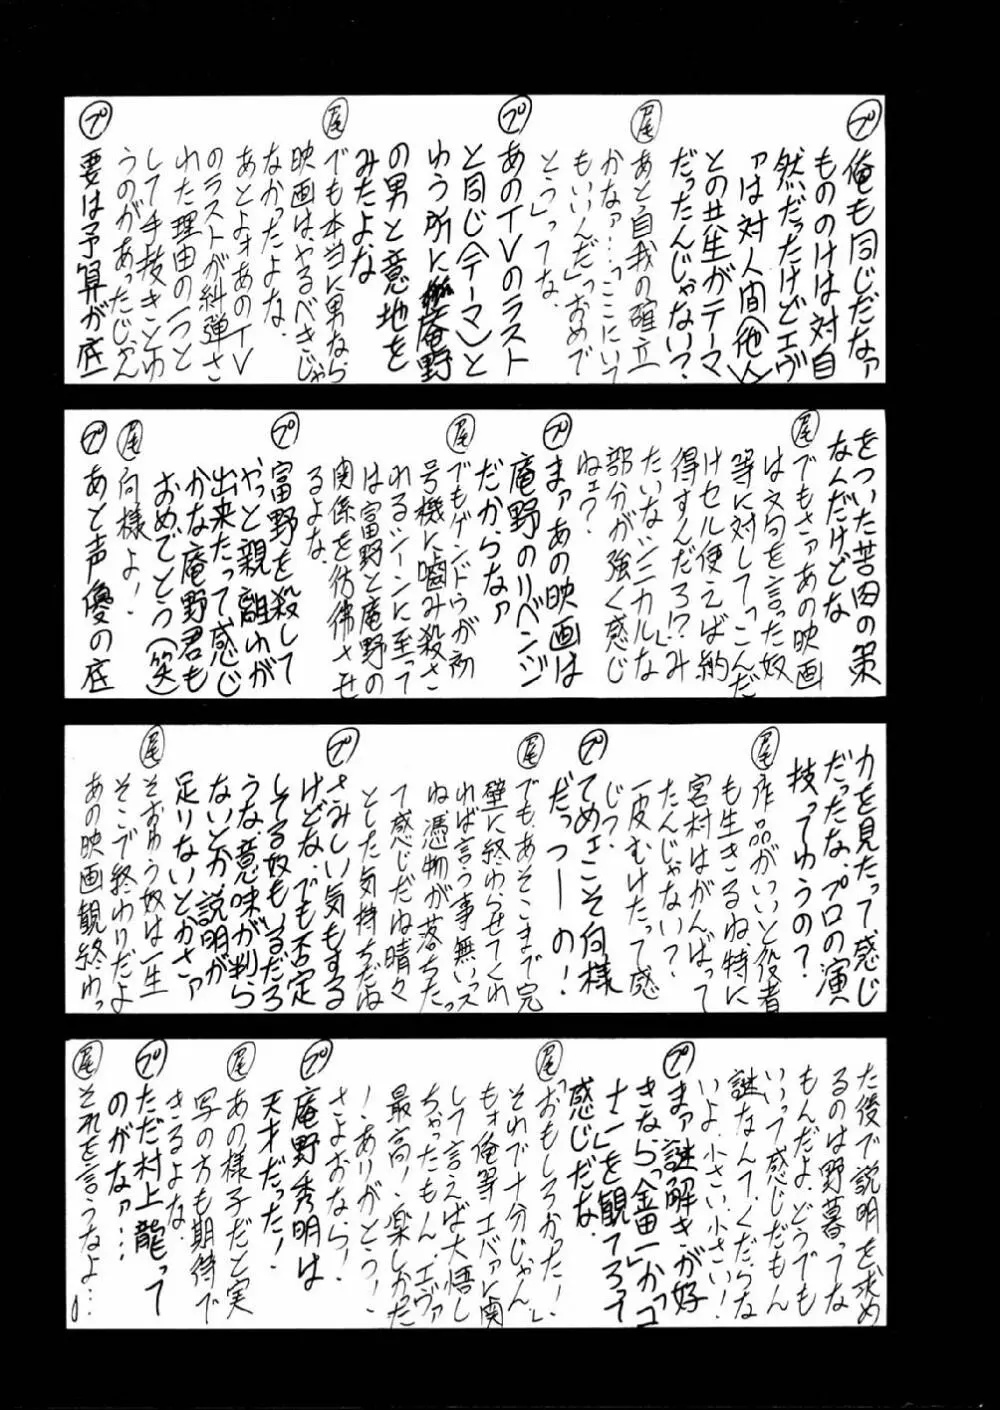 プ 俺も同じだなァ
もののけは対自
然だったけどエヴ
ァは対人間(他人)
との共生がテーマ
だったんじゃない?
尾 あと自我の確立
かなァ…「ここにいて
もいいんだ」「おめで
とう」ってな、
プ あのTVのラスト
と同じ〈テーマ〉と
ゆう所に庵野
の男と意地を
みたよな
尾 でも本当に男なら
映画は、やるべきじゃ
なかったよな、
あとよォあのTV
のラストが糾弾さ
れた理由の一つと
して手抜きとゆ
うのがあったじゃん
プ 要は予算が底
をついた苦肉の策
なんだけどな
尾 でもさァあの映画
は文句を言った奴
等に対して「こんだ
けセル使えば納
得すんだろ!?」み
たいな〝シニカル〟な
部分が強く感じ
ねェ?
プ まァあの映画は
庵野のリベンジ
だからなァ
尾 でもゲンドウが初
号機に噛み殺さ
れるシーンに至って
は富野と庵野の
関係を彷彿させ
るよな、
プ 富野を殺して
やっと親離れが
出来たって感じ
かな庵野君も
おめでとう(笑)
尾 何様よ!
プ あと声優の底
力を見たって感じ
だったな、プロの演
技ってゆうの?
尾 作品がいいと役者
も生きるね、特に
宮村はがんばって
たんじゃない?
一皮むけたって感
じっ、
プ てめェこそ何様
だっつーの!
尾 でも、あそこまで完
璧に終わらせてくれ
れば言う事無いっス
ね憑物が落ちたっ
て感じだね晴々
とした気持ちだね
プ さみしい気もする
けどな、でも否定
してる奴もいるだろ
うな、意味が判ら
ないとか、説明が
足りないとかさァ
尾 そおゆう奴は一生
そこで終わりだよ
あの映画観終わっ
た後で説明を求め
るのは野暮ってな
もんだよ、どうでも
いいって感じだもん
謎なんて、くだらな
いよ、小さい、小さい!
プ まァ謎解きが好
きなら「金田一」か「コ
ナン」を観てろって
感じだな、
尾 「おもしろかった!」
それで十分じゃん、
もォ俺等エバァに関
して言えば大悟し
ちゃったもん、エヴァ
最高!楽しかった
!ありがとう!
さよおなら!
プ 庵野秀明は
天才だった!
尾 あの様子だと実
写の方も期待で
きるよな、
プ ただ村上龍って
のがなァ…
尾 それを言うなよ…